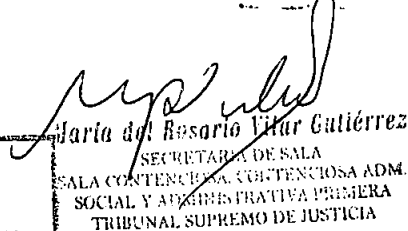 María del Rosario Vilar Gutiérrez
SECRETARIA DE SALA
SALA CONTENCIOSA, CONTENCIOSA ADM.
SOCIAL Y ADMINISTRATIVA PRIMERA
TRIBUNAL SUPREMO DE JUSTICIA